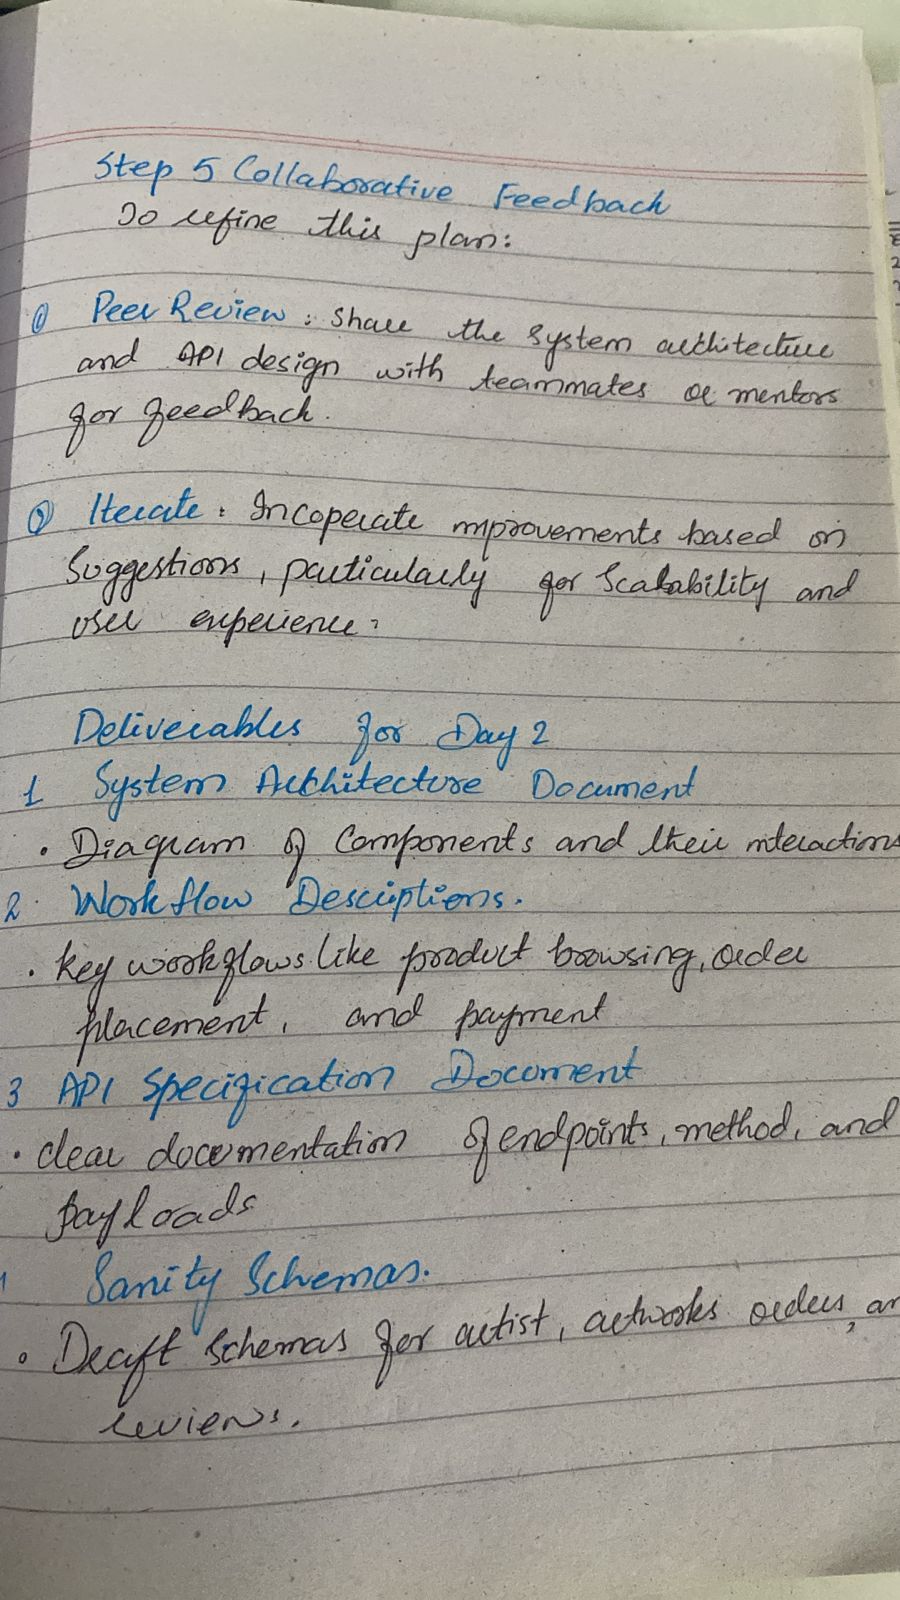 Step 5 Collaborative Feedback
To refine this plan:
① Peer Review : Share the System architecture
and API design with teammates or mentors
for feedback.
② Iterate : Incoperate improvements based on
Suggestions, particularly for Scalability and
user experience.
Deliverables for Day 2
1 System Architecture Document
• Diagram of Components and their interactions
2. Workflow Descriptions.
• key workflows like product browsing, order
placement, and payment
3 API Specification Document
• clear documentation of endpoints, method, and
payloads
Sanity Schemas.
• Draft Schemas for artist, artworks orders,
reviews.